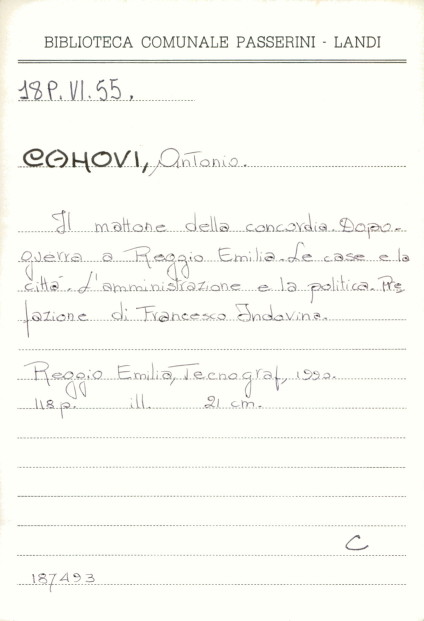 BIBLIOTECA COMUNALE PASSERINI - LANDI
18P.VI.55.
CAHOVI, Antonio.
Il mattone della concordia. Dopo-
guerra a Reggio Emilia. Le case e la
città. L'amministrazione e la politica. Pre
fazione di Francesco Indovina.
Reggio Emilia, Tecnograf, 1990.
118 p. ill. 21 cm.
C
187493